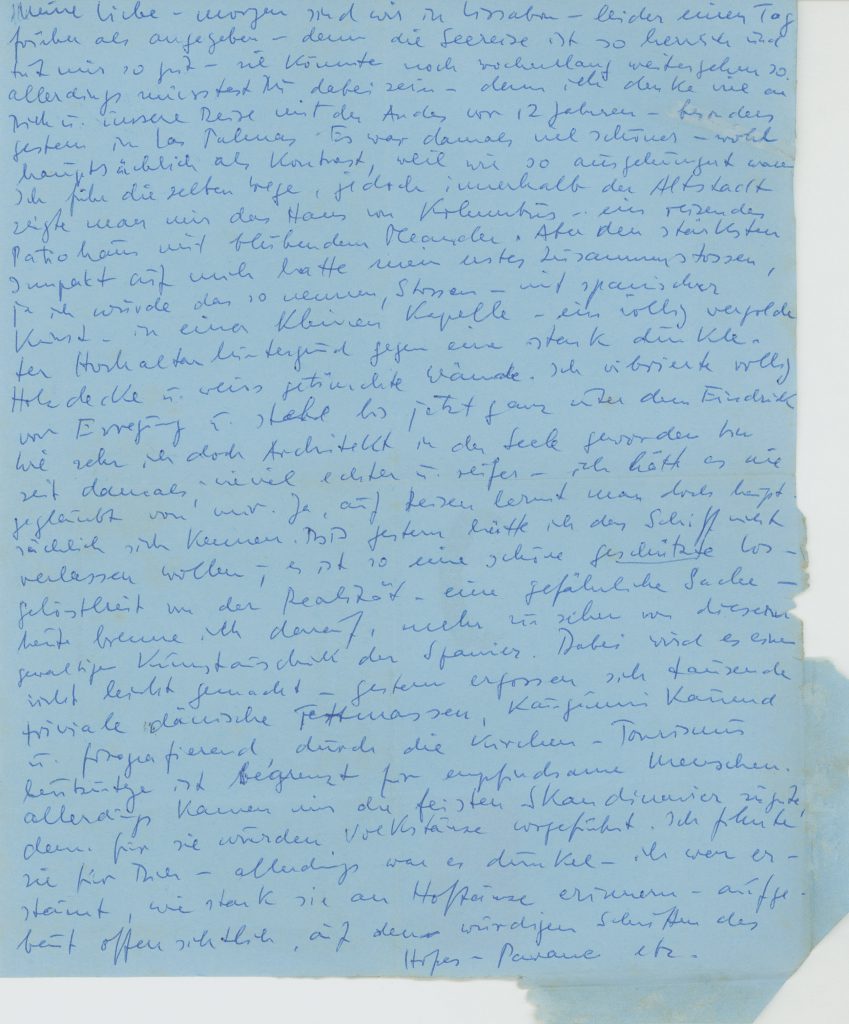 Meine Liebe – morgen sind wir in Lissabon – leider einen Tag
früher als angegeben – denn die Seereise ist so herrlich und
tut mir so gut – sie könnte noch wochenlang weitergehen so.
allerdings müsstest Du dabei sein – denn ich denke viel an
Dich u. unsere Reise mit der Andes vor 12 Jahren – besonders
gestern in Las Palmas. Es war damals viel schöner – wohl
hauptsächlich als Kontrast, weil wir so ausgehungert waren
Ich fuhr die selben Wege, jedoch innerhalb der Altstadt
zeigte man mir das Haus von Kolumbus – ein reizendes
Patiohaus mit blühendem Oleander. Aber den stärksten
Impakt auf mich hatte mein erstes Zusammenstossen,
ja ich würde das so nennen, Stossen – mit spanischer
Kunst – in einer kleinen Kapelle – ein völlig vergolde
ter Hochaltarhintergrund gegen eine stark dunkle
Holzdecke u. weiss getünchte Wände. Ich vibrierte völlig
vor Erregung u. stehe bis jetzt ganz unter dem Eindruck
wie sehr ich doch Architekt in der Seele geworden bin
seit damals, wieviel echter u. reifer – ich hätt es nie
geglaubt von mir. Ja, auf Reisen lernt man doch haupt-
sächlich sich kennen. Bis gestern hätte ich das Schiff nicht
verlassen wollen –, es ist so eine schöne geschützte Los-
gelöstheit von der Realität – eine gefährliche Sache –
heute brenne ich darauf, mehr zu sehen von diesem
gewaltigen Kunstausdruck der Spanier. Dabei wird es einem
nicht leicht gemacht – gestern ergossen sich tausende
triviale dänische Fettmassen, Kaugummi kauend
u. fotografierend, durch die Kirchen – Tourismus
heutzutage ist begrenzt für empfindsame Menschen.
allerdings kamen mir die feisten Skandinavier zugute,
denn für sie wurden Volkstänze vorgeführt. Ich filmte
sie für Dich – allerdings war es dunkel – ich war er-
staunt, wie stark sie an Hoftänze erinnern – aufge-
baut offensichtlich, auf den würdigen Schritten des
Hofes – Pavane etc.